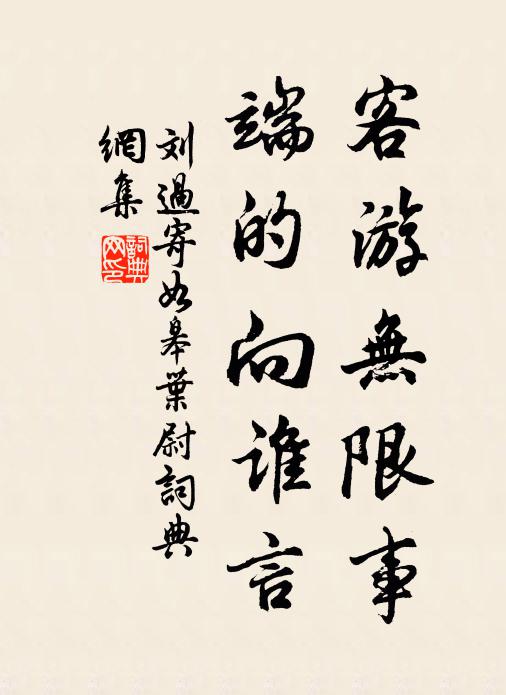 客游無限事
端的向誰言
刘過寄如皋葉尉詞典
網集
詞典
网印